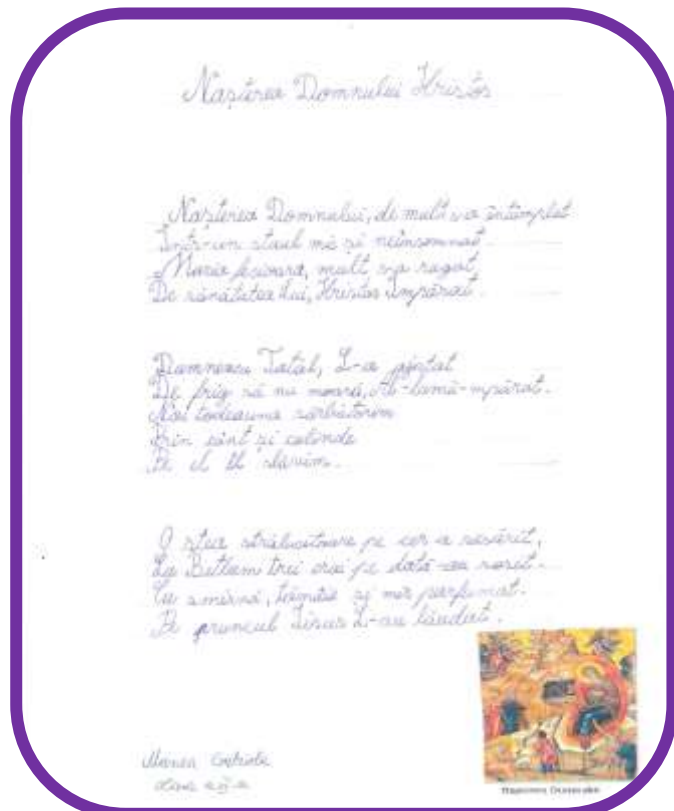 Nașterea Domnului Hristos
Nașterea Domnului, de mult s-a întâmplat
Într-un staul mic și neînsemnat.
Maria fecioară, mult s-a rugat
De sănătatea Lui, Hristos Împărat.
Dumnezeu Tatăl, L-a ajutat
De frig să nu moară,
Noi todeauna sărbătorim
Prin cânt și colinde
Pe el Îl slăvim.
O stea strălucitoare pe cer a răsărit,
La Betleem trei crai pe dată-au sosit.
Cu smirnă, tămâie și mir parfumat.
Pe pruncul Iisus L-au lăudat.
Manea
clasa a
Nașterea Domnului